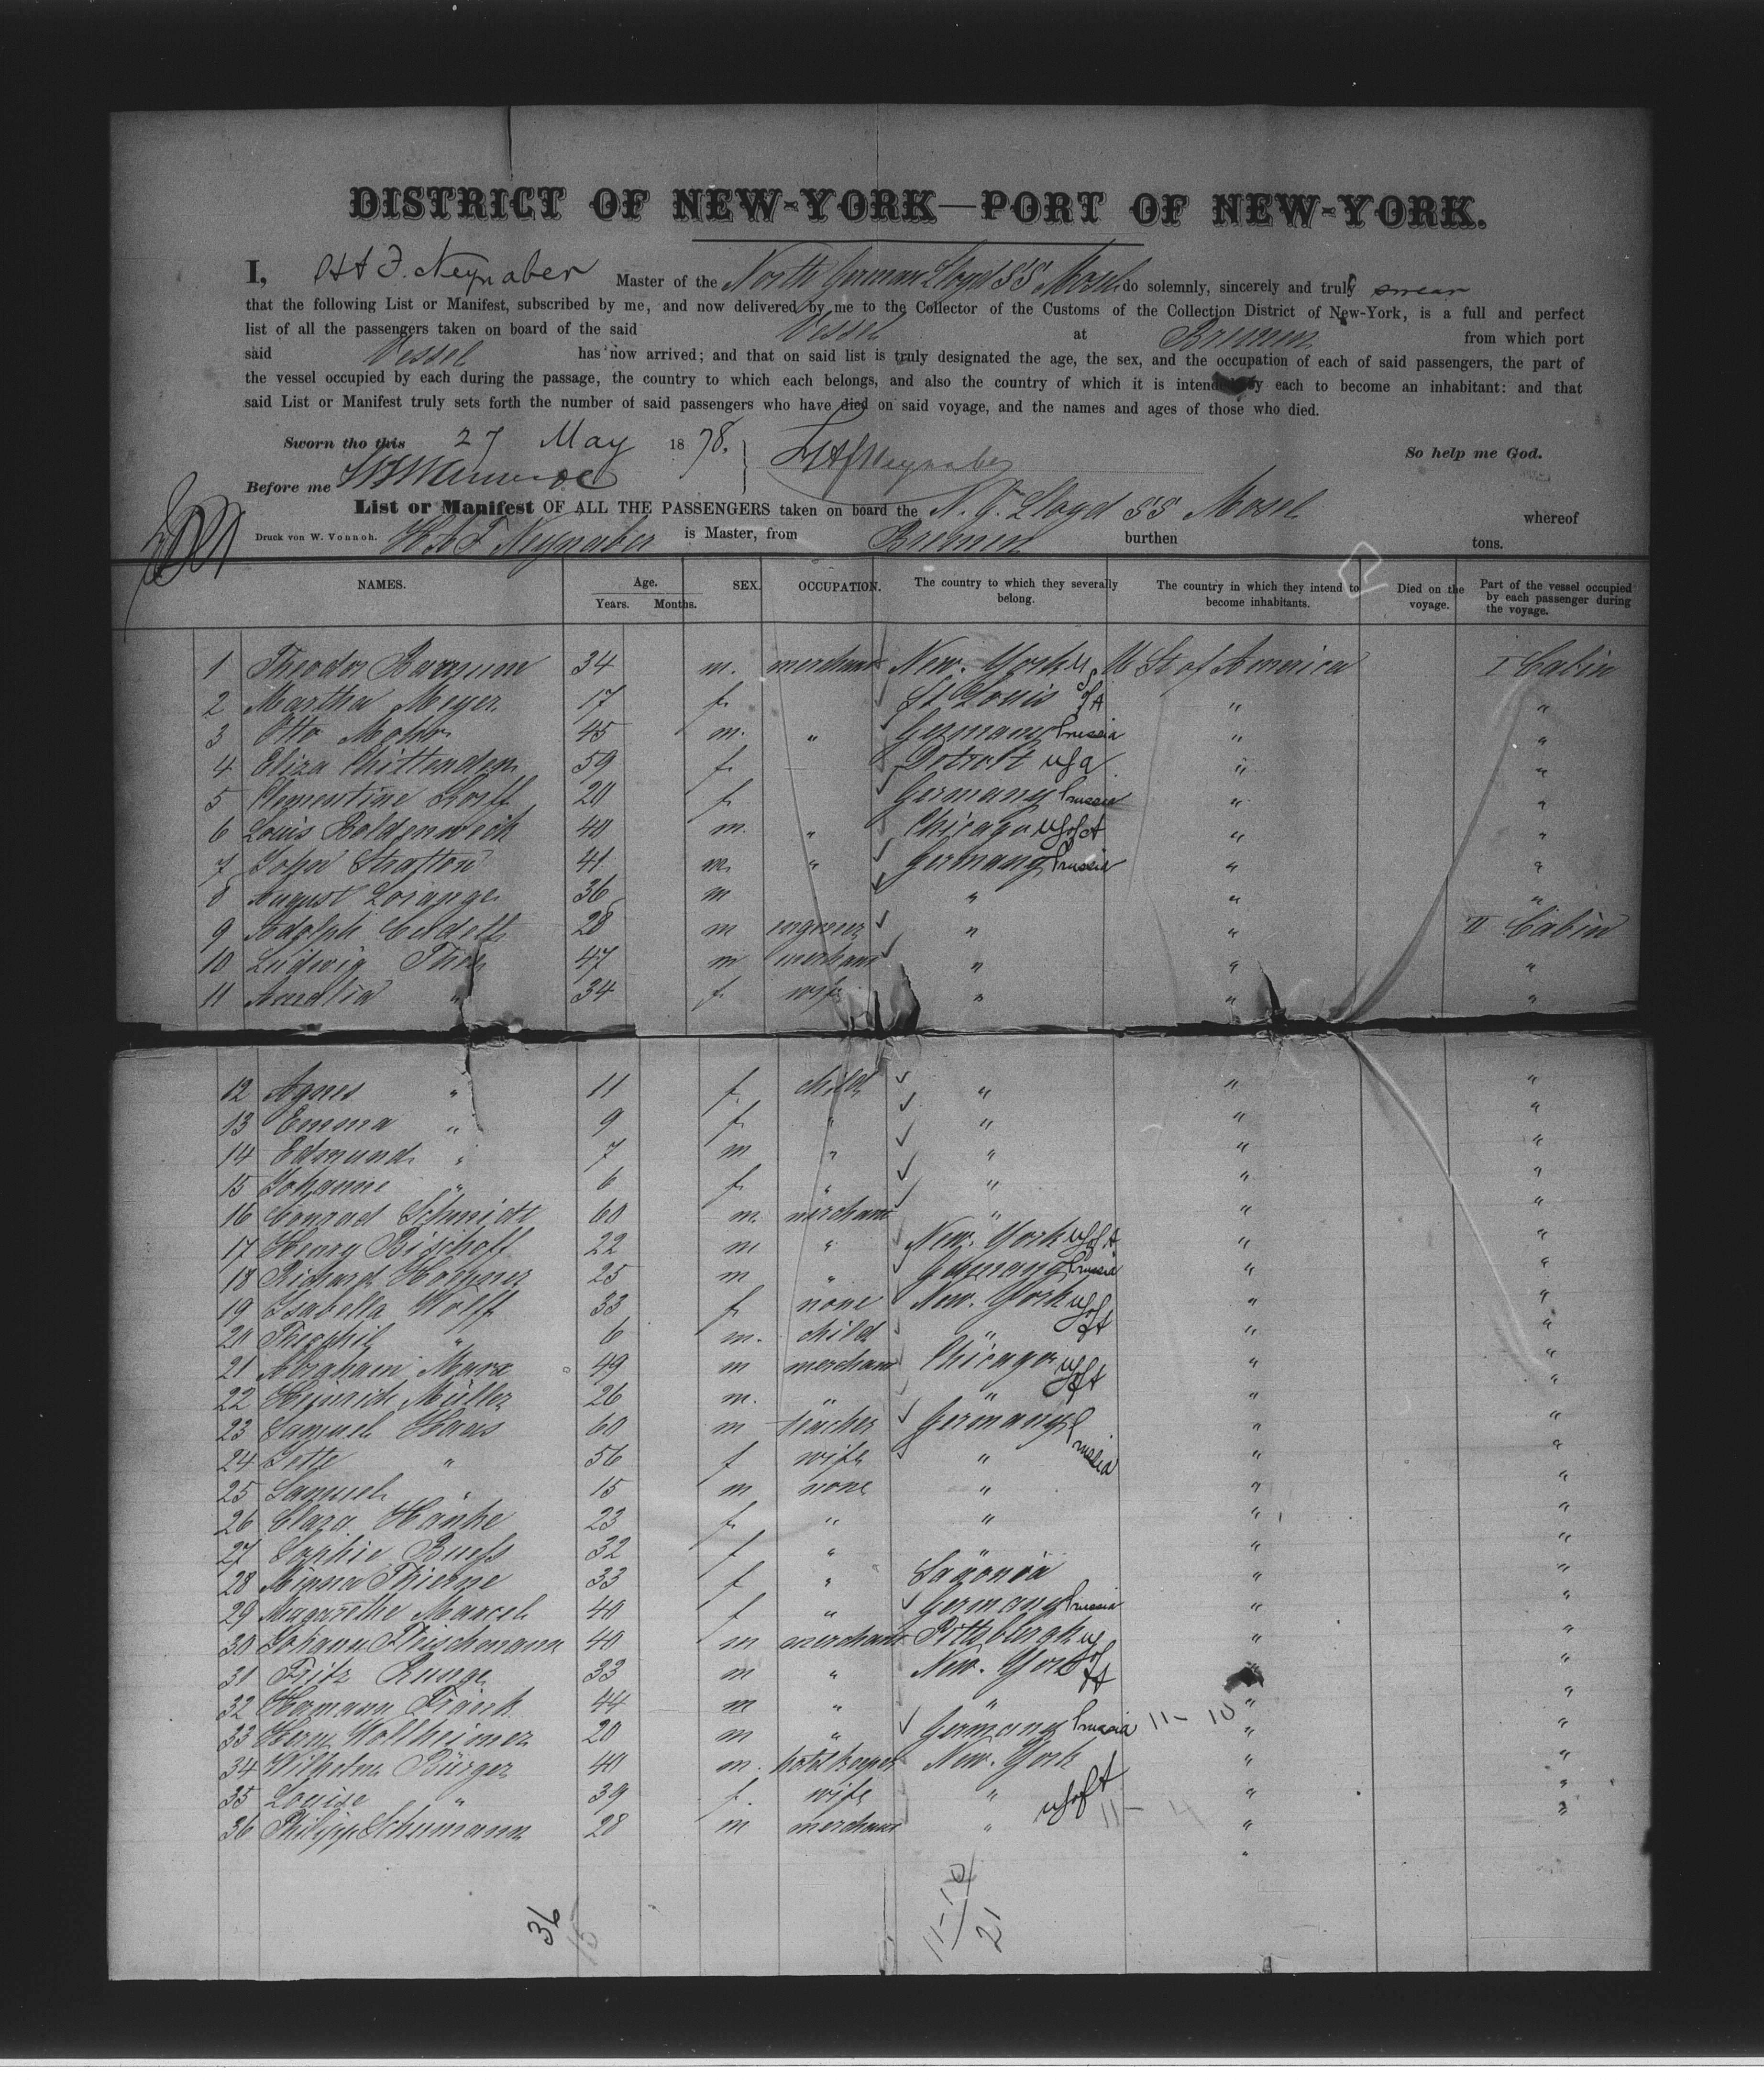 DISTRICT OF NEW-YORK—PORT OF NEW-YORK.
I, H A F. Neynaber Master of the North German Lloyd SS Mosel do solemnly, sincerely and truly swear
that the following List or Manifest, subscribed by me, and now delivered by me to the Collector of the Customs of the Collection District of New-York, is a full and perfect
list of all the passengers taken on board of the said Vessel at Bremen from which port
said Vessel has now arrived; and that on said list is truly designated the age, the sex, and the occupation of each of said passengers, the part of
the vessel occupied by each during the passage, the country to which each belongs, and also the country of which it is intended by each to become an inhabitant: and that
said List or Manifest truly sets forth the number of said passengers who have died on said voyage, and the names and ages of those who died.
Sworn tho this 27 May 1878. HAF Neynaber So help me God.
Before me
List or Manifest OF ALL THE PASSENGERS taken on board the N. G. Lloyd SS Mosel whereof
Druck von W. Vonnoh. H. A F Neynaber is Master, from Bremen burthen tons.
NAMES. Age. Years. Months. SEX. OCCUPATION. The country to which they severally belong. The country in which they intend to become inhabitants. Died on the voyage. Part of the vessel occupied by each passenger during the voyage.
1 Theodor 34 m. merchant New-York U S U St of America I Cabin
2 Martha Meyer 17 f. St Louis of A " "
3 Otto Mohr 45 m. " Germany Prussia " "
4 Eliza Chittenden 59 f. Detroit U S a " "
5 Clementine 20 f. Germany Prussia " "
6 Louis Boldenweck 40 m. " Chicago U S of A " "
7 John Stratton 41 m. " Germany Prussia " "
8 August Lorange 36 m " " "
9 Adolph 28 m engineer " " II Cabin
10 Ludwig 47 m merchant " " "
11 Amalia " 34 f. wife " " "
12 Agnes " 11 f. child " " "
13 Emma " 9 f. " " " "
14 Edmund " 7 m " " " "
15 Johanne " 6 f. " " " "
16 Conrad Schmidt 60 m. merchant " " "
17 Henry Bischoff 22 m " New-York U S of A " "
18 Richard 25 m " Germany Prussia " "
19 Isabella Wolff 33 f. none New-York U S of A " "
20 Theophil " 6 m. child " " "
21 Abraham Marx 49 m merchant Chicago U S of A " "
22 Heinrich Müller 26 m. " " " "
23 Samuel Haas 60 m teacher Germany Prussia " "
24 Jette " 56 f wife " " "
25 Samuel " 15 m none " " "
26 Clara Hanke 23 f. " " " "
27 Sophie 32 f " " "
28 Minna Thieme 33 f " Saxonia " "
29 Magarethe Marcel 40 f " Germany Prussia " "
30 Johann Fleischmann 40 m merchant Pittsburgh U S of A " "
31 Fritz Runge 33 m " New-York " "
32 Hermann Frank 44 m " " " "
33 Herm. Wollheimer 20 m " Germany Prussia 11-10 " "
34 Wilhelm Bürger 40 m. hotelkeeper New-York " "
35 Louise " 39 f. wife " U S of A " "
36 Philipp Schumann 28 m merchant " 11-4 " "
36
15
11-10
21